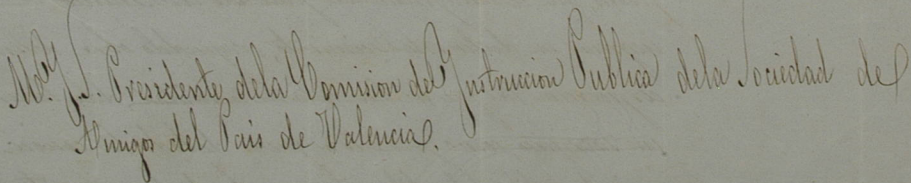 M. Y. S. Presidente dela Comision de Instruccion Publica dela Sociedad de
Amigos del Pais de Valencia.